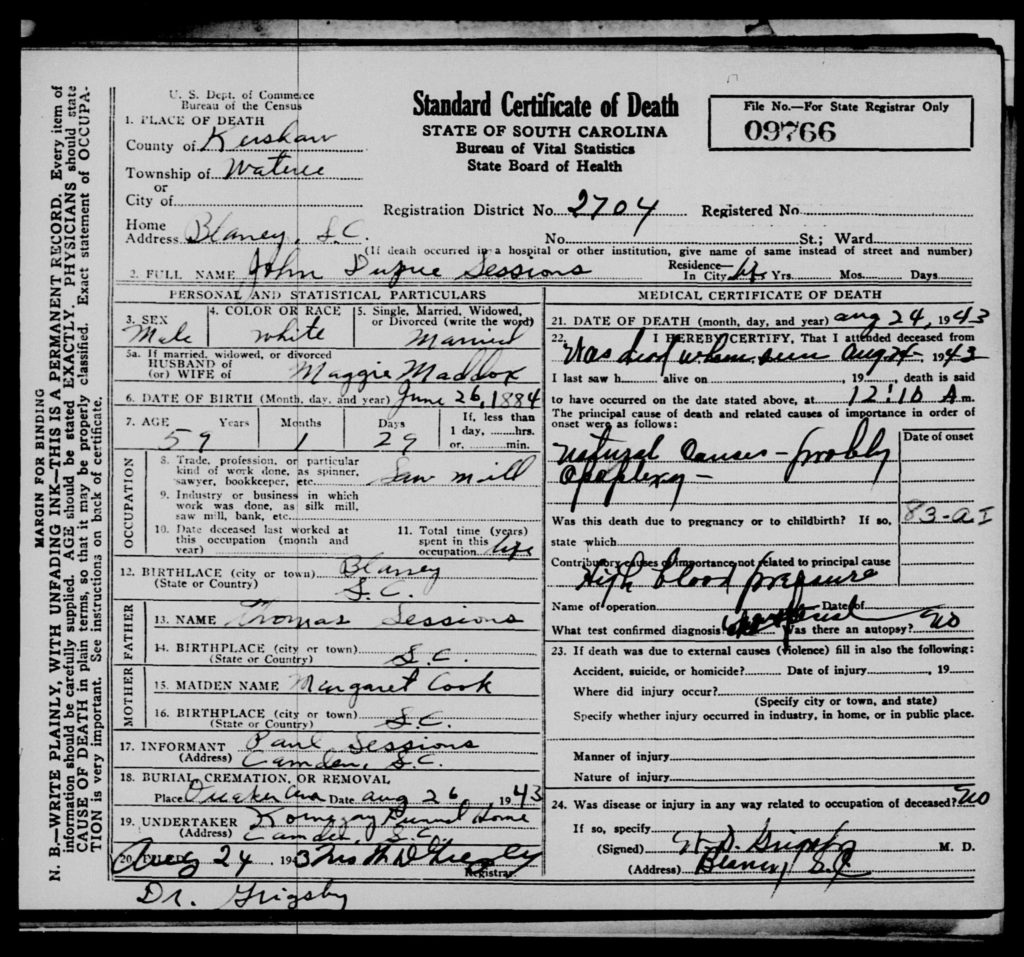 U. S. Dept. of Commerce
Bureau of the Census
Standard Certificate of Death
STATE OF SOUTH CAROLINA
Bureau of Vital Statistics
State Board of Health
File No.—For State Registrar Only
09766
1. PLACE OF DEATH
County of Kershaw
Township of Wateree
or
City of
Registration District No. 2704 Registered No.
Home
Address Blaney, S.C. No. St.; Ward
(If death occurred in a hospital or other institution, give name of same instead of street and number)
2. FULL NAME John Sessions Residence—
In City life Yrs. Mos. Days
PERSONAL AND STATISTICAL PARTICULARS
3. SEX
Male
4. COLOR OR RACE
white
5. Single, Married, Widowed,
or Divorced (write the word)
Married
5a. If married, widowed, or divorced
HUSBAND of
(or) WIFE of Maggie Maddox
6. DATE OF BIRTH (Month, day, and year) June 26, 1884
7. AGE Years Months Days If, less than
1 day, hrs.
or min.
59 1 29
OCCUPATION
8. Trade, profession, or particular
kind of work done, as spinner,
sawyer, bookkeeper, etc. Saw mill
9. Industry or business in which
work was done, as silk mill,
saw mill, bank, etc.
10. Date deceased last worked at
this occupation (month and
year)
11. Total time (years)
spent in this
occupation life
12. BIRTHPLACE (city or town) Blaney
(State or Country) S.C.
FATHER
13. NAME Thomas Sessions
14. BIRTHPLACE (city or town)
(State or Country) S.C.
MOTHER
15. MAIDEN NAME Margaret Cook
16. BIRTHPLACE (city or town)
(State or Country) S.C.
17. INFORMANT Paul Sessions
(Address) Camden, S.C.
18. BURIAL, CREMATION, OR REMOVAL
Place Quaker Cem Date Aug 26 1943
19. UNDERTAKER Kornegay Funeral Home
(Address) Camden, S.C.
20. FILED Aug 24, 1943 Grigsby
Registrar.
Dr. Grigsby
MEDICAL CERTIFICATE OF DEATH
21. DATE OF DEATH (month, day, and year) Aug 24, 1943
22. I HEREBY CERTIFY, That I attended deceased from
Was dead when seen Aug 24 1943
I last saw h alive on , 19 , death is said
to have occurred on the date stated above, at 12:10 A m.
The principal cause of death and related causes of importance in order of
onset were as follows:
Date of onset
Natural Causes - probly
Apoplexy -
Was this death due to pregnancy or to childbirth? If so, 83-a I
state which
Contributory causes of importance not related to principal cause
High blood pressure
Name of operation Date of
What test confirmed diagnosis? Was there an autopsy? No
23. If death was due to external causes (violence) fill in also the following:
Accident, suicide, or homicide? Date of injury , 19
Where did injury occur?
(Specify city or town, and state)
Specify whether injury occurred in industry, in home, or in public place.
Manner of injury
Nature of injury
24. Was disease or injury in any way related to occupation of deceased? No
If so, specify
(Signed) W. D. Grigsby M. D.
(Address) Blaney S.C.
MARGIN FOR BINDING
N. B.—WRITE PLAINLY, WITH UNFADING INK—THIS IS A PERMANENT RECORD. Every item of
information should be carefully supplied. AGE should be stated EXACTLY. PHYSICIANS should state
CAUSE OF DEATH in plain terms, so that it may be properly classified. Exact statement of OCCUPA-
TION is very important. See instructions on back of certificate.